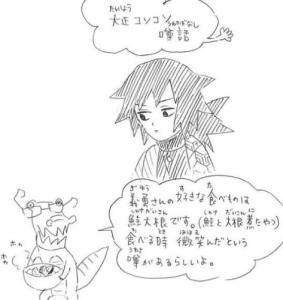 たいしょう うわさばなし
大正コソコソ
噂話
ぎゆう す た
義勇さんの好きな食べものは
しゃけだいこん しゃけ だいこん に
鮭大根です。(鮭と大根煮たやつ)
た とき ほほえ
食べる時 微笑んだという
うわさ
噂があるらしいよ。
ホカ
ホカ